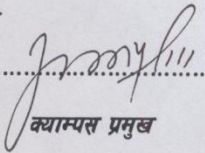 क्याम्पस प्रमुख